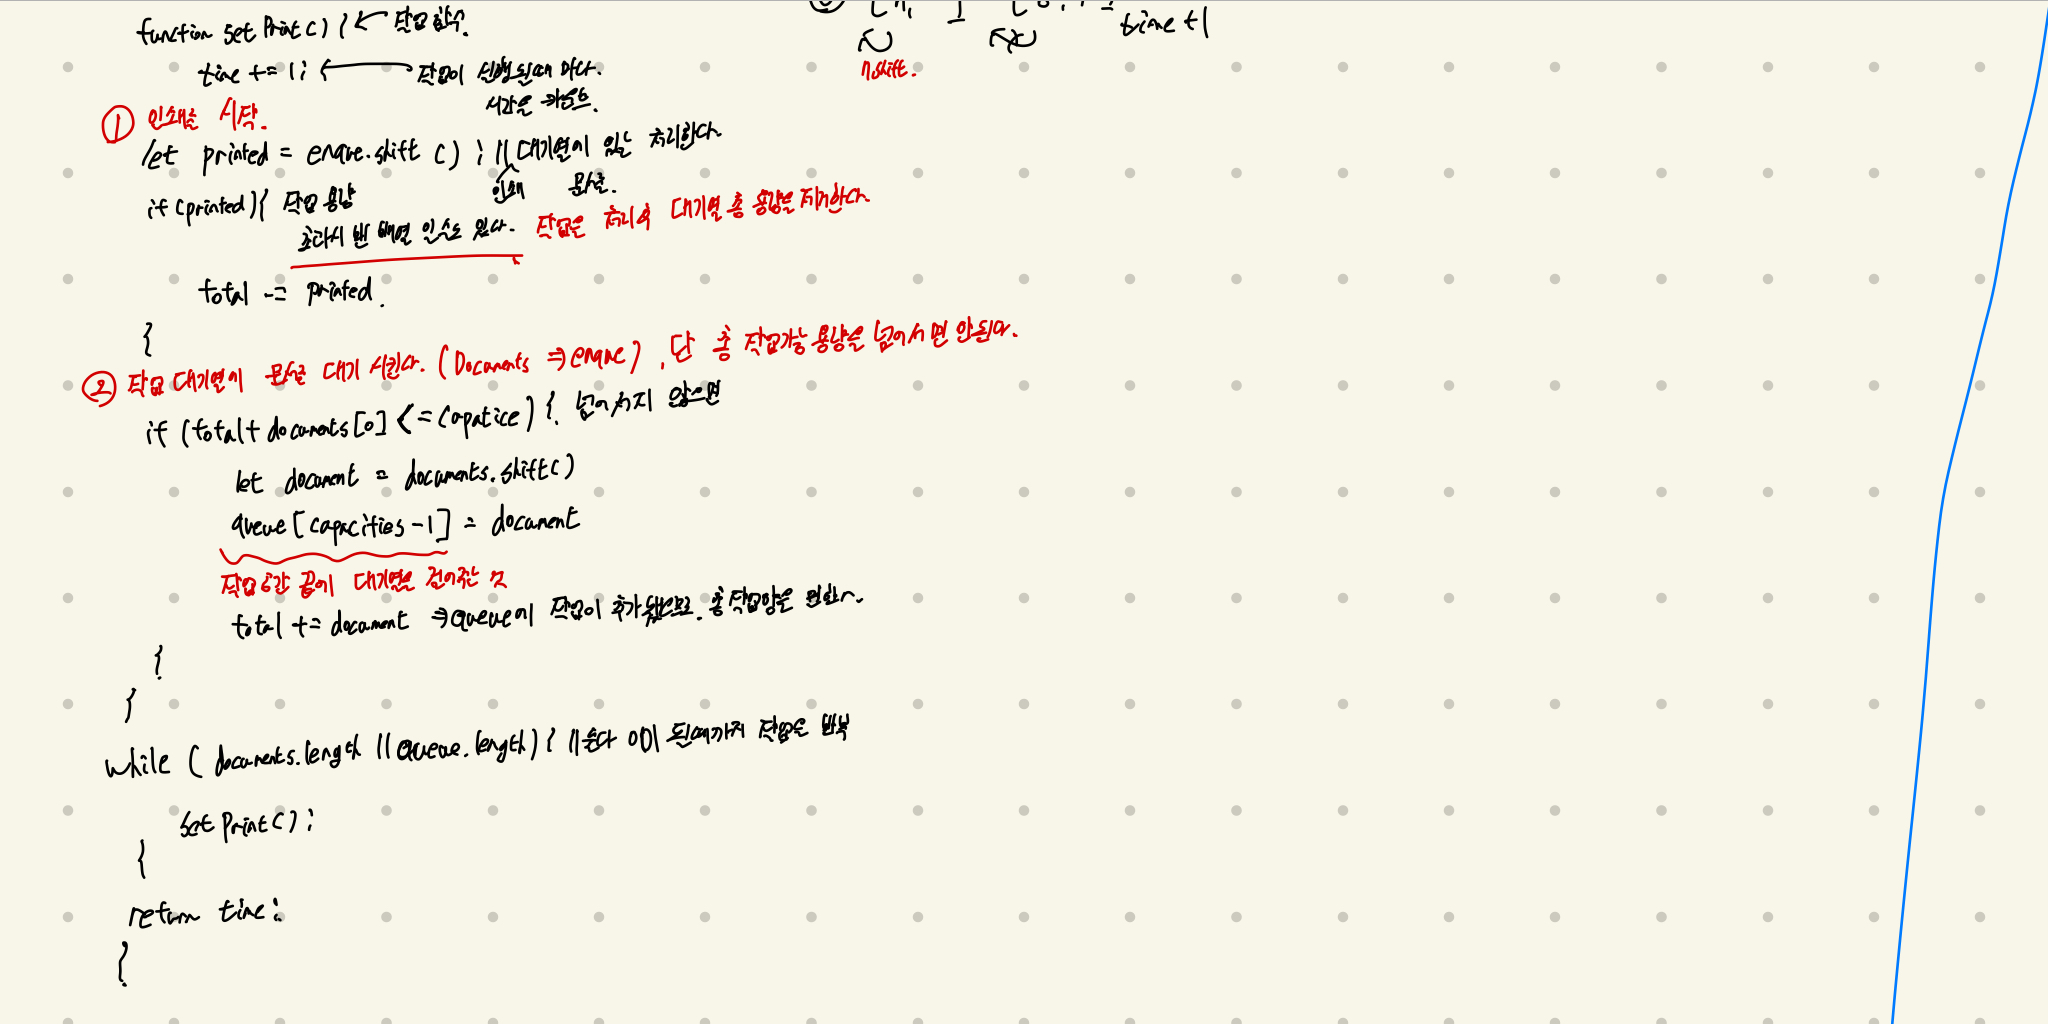 function set Print() { ← 작업 함수.
time += 1; ← 작업이 실행될때 마다.
시간을 카운트.
time +1
unshift.
① 인쇄를 시작.
let printed = enque.shift () ; // 대기열에 있는 처리한다
인쇄 문서를.
if (printed) { 작업 용량
초과시 빈 배열 인수도 있다. 작업을 처리후 대기열 총 용량을 제거한다.
total -= printed.
}
② 작업 대기열에 문서를 대기 시킨다. (Documents ⇒ enque), 단 총 작업가능 용량을 넘어서면 안된다.
if (total + documents[0] <= Capatice) { 넘어서지 않으면
let document = documents.shift()
queue[capacities-1] = document
작업공간 끝에 대기열을 걸어주는 것
total += document ⇒ queue에 작업이 추가 됐으므로. 총 작업량은 변화.
}
}
while ( documents.length || queue.length) { // 둘다 0이 될때까지 작업은 반복
set Print();
}
return time;
}